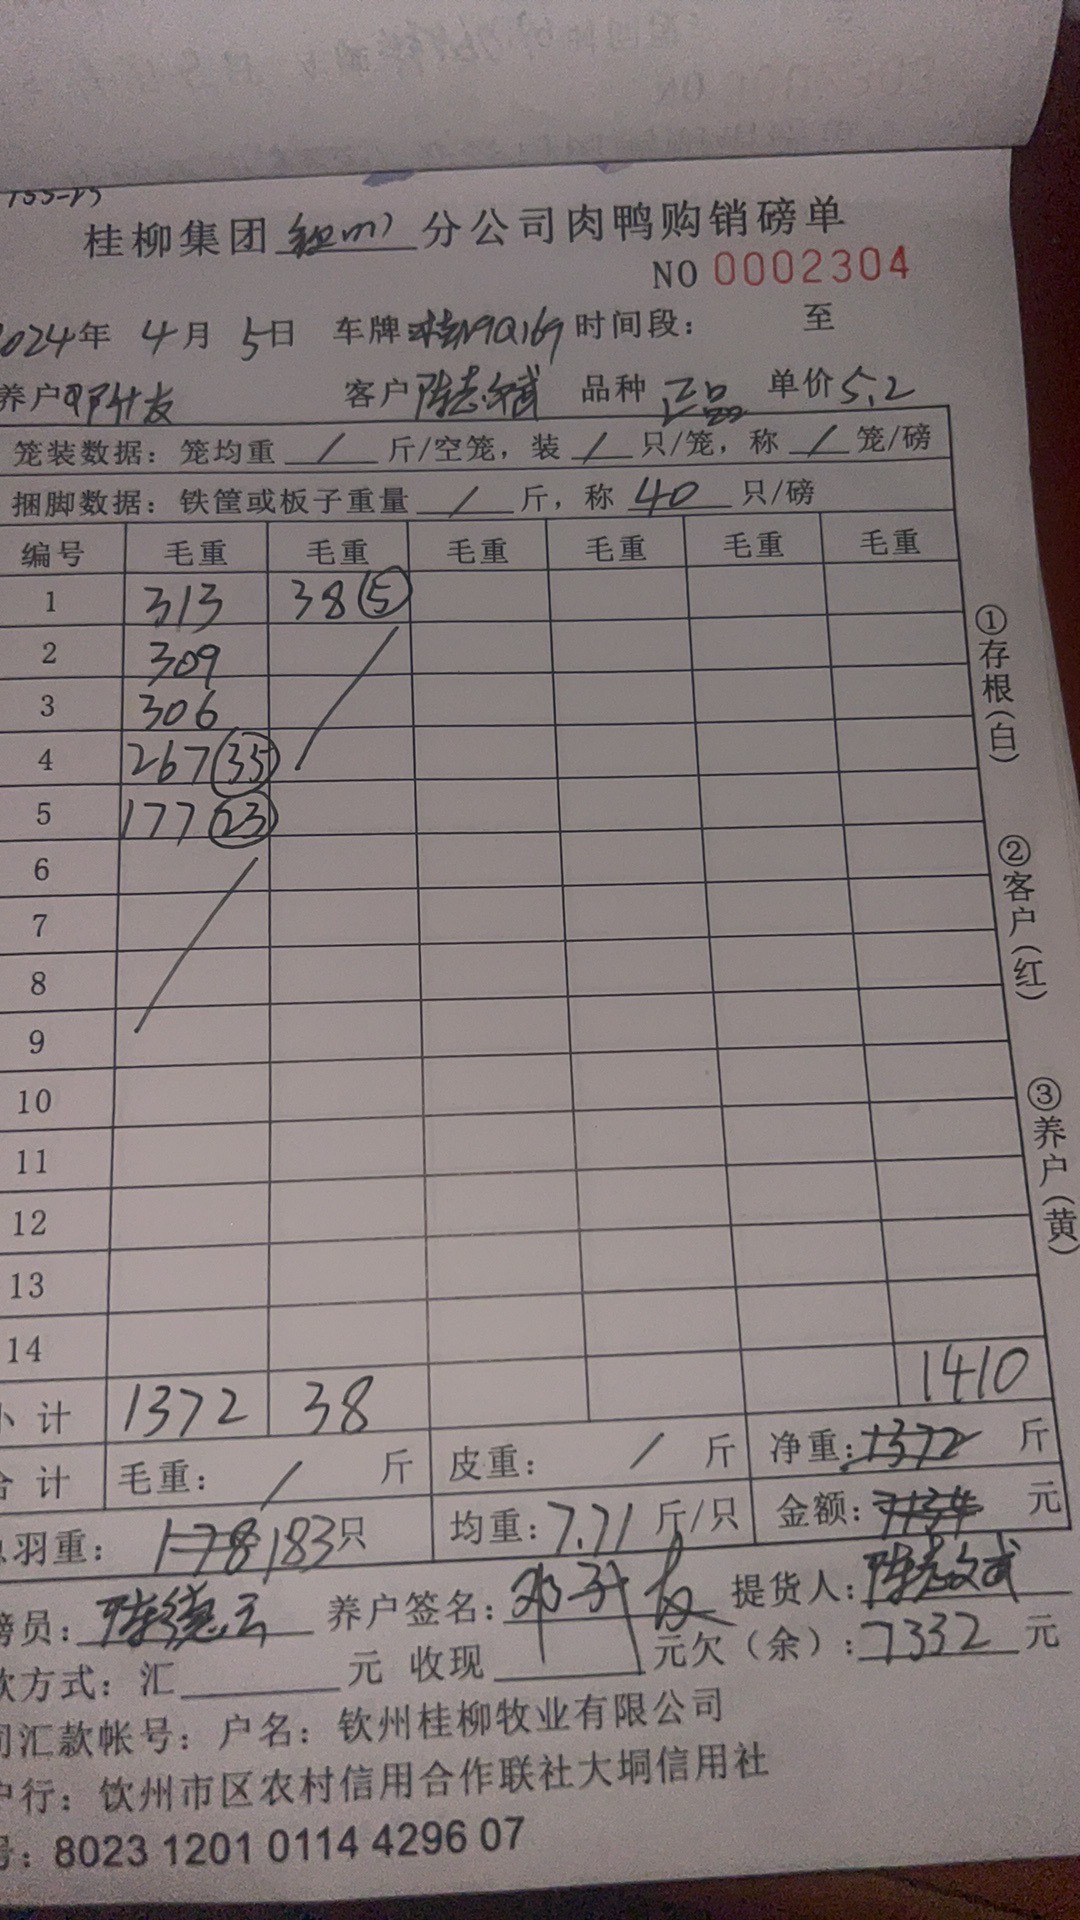 桂柳集团钦州分公司肉鸭购销磅单
NO 0002304
2024年 4月 5日 车牌桂N9Q169 时间段： 至
养户邓升友 客户陈志斌 品种 正品 单价5.2
笼装数据：笼均重 / 斤/空笼，装 / 只/笼，称 / 笼/磅
捆脚数据：铁筐或板子重量 / 斤，称 40 只/磅
编号 毛重 毛重 毛重 毛重 毛重 毛重
1 313 38(5)
2 309
3 306
4 267(35)
5 177(23)
6
7
8
9
10
11
12
13
14
小计 1372 38 1410
合计 毛重： / 斤 皮重： / 斤 净重：1372 斤
羽重： 178,183只 均重：7.71斤/只 金额：7134 元
磅员：陈德云 养户签名：邓升友 提货人：陈志斌
款方式：汇 元 收现 元欠（余）：7332 元
司汇款帐号：户名：钦州桂柳牧业有限公司
户行：钦州市区农村信用合作联社大垌信用社
号：8023 1201 0114 4296 07
①存根（白）
②客户（红）
③养户（黄）